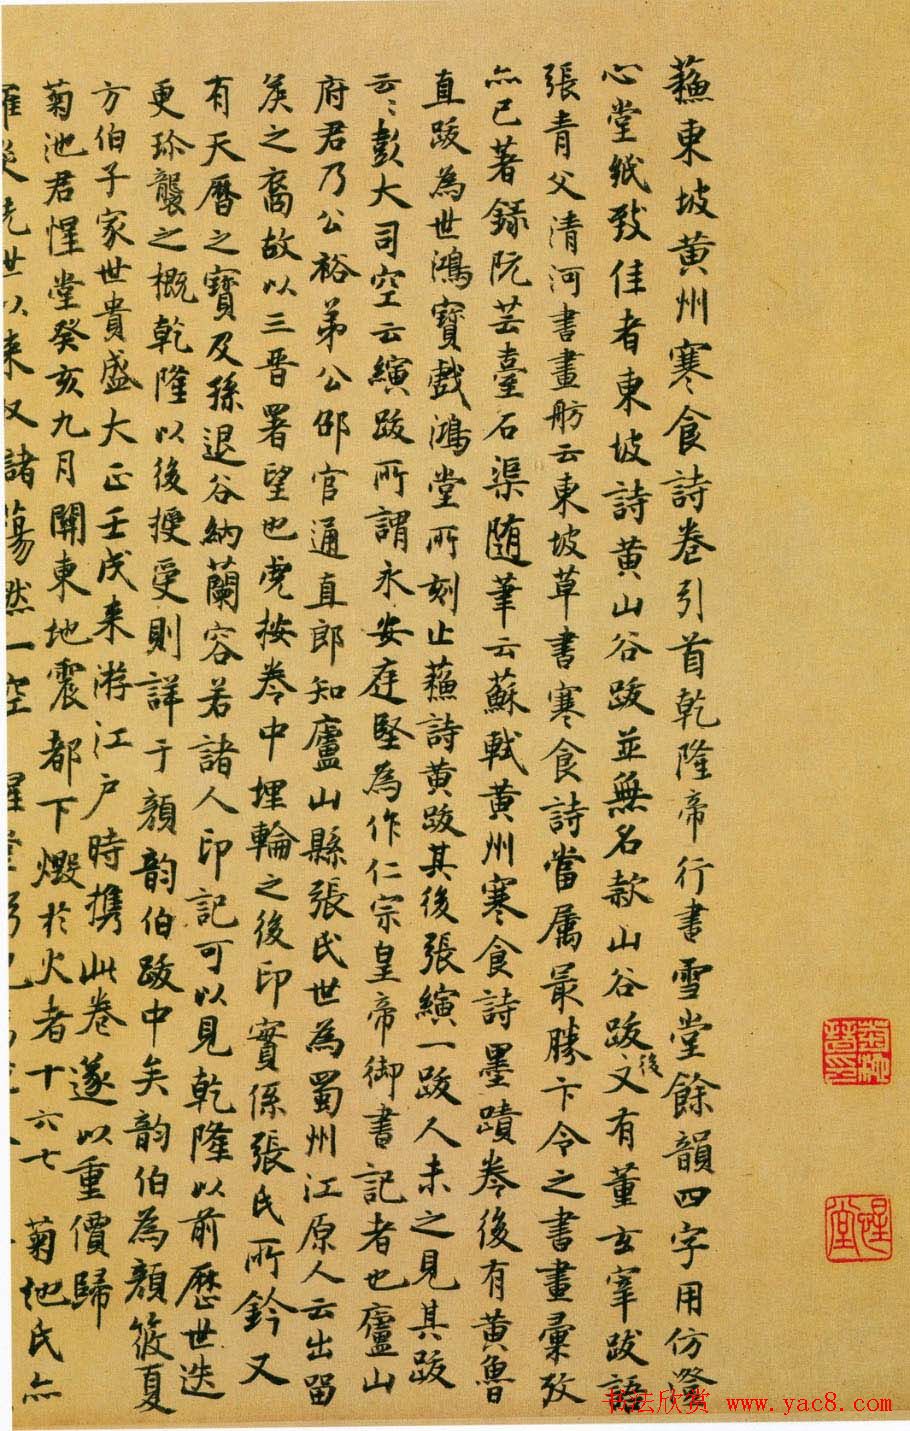 蘓東坡黄州寒食詩卷引首乾隆帝行書雪堂餘韻四字用仿澄
心堂紙致佳者東坡詩黄山谷跋並無名款山谷跋後又有董玄宰跋語
張青父清河書畫舫云東坡草書寒食詩當属最勝卞令之書畫彙攷
亦已著録阮芸臺石渠随筆云蘇軾黄州寒食詩墨蹟卷後有黄魯
直跋為世鴻寳戲鴻堂所刻止蘓詩黄跋其後張縯一跋人未之見其跋
云〻彭大司空云縯跋所謂永安庭堅為作仁宗皇帝御書記者也廬山
府君乃公裕弟公邵官通直郎知廬山縣張氏世為蜀州江原人云出留
矦之裔故以三晋署望也虎按卷中埋輪之後印實係張氏所鈐又
有天曆之寶及孫退谷納蘭容若諸人印記可以見乾隆以前歴世迭
更珎襲之概乾隆以後授受則詳于顔韵伯跋中矣韵伯為顔筱夏
方伯子家世貴盛大正壬戌来游江户時携此卷遂以重價歸
菊池君惺堂癸亥九月關東地震都下燬於火者十六七菊池氏亦
罹災先世以来収諸蕩然一空惺堂
菊池晉印
惺堂
书法欣赏 www.yac8.com